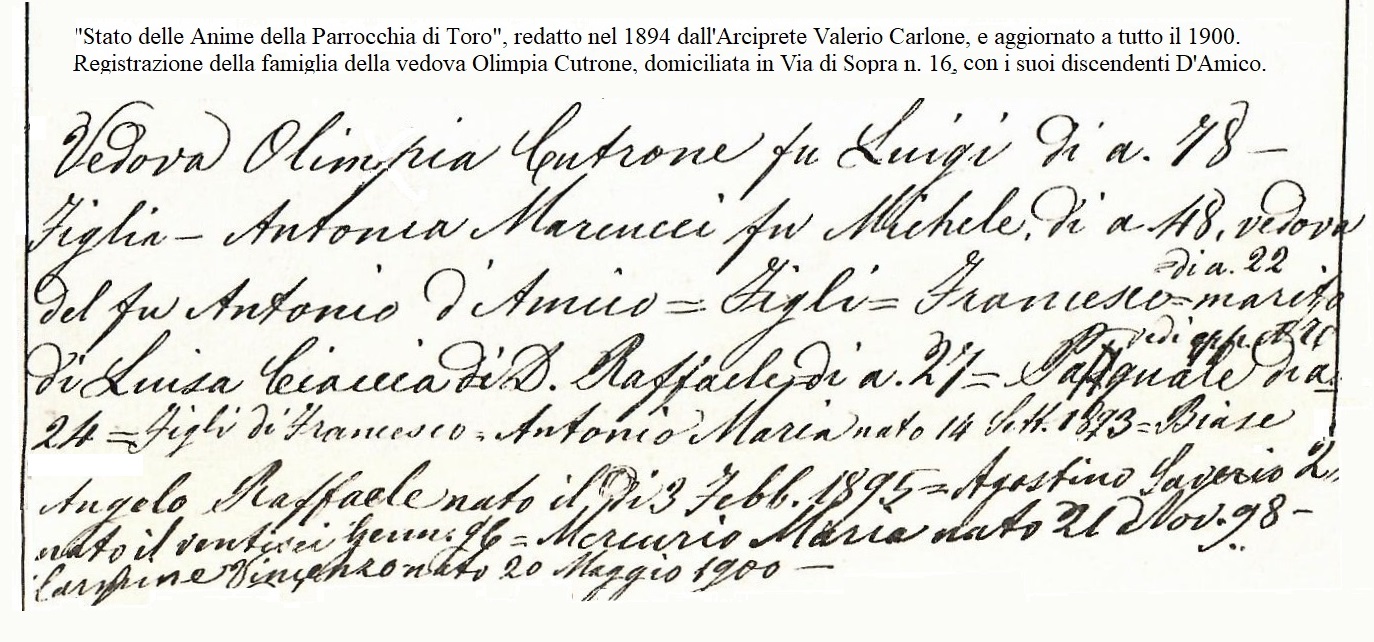 "Stato delle Anime della Parrocchia di Toro", redatto nel 1894 dall'Arciprete Valerio Carlone, e aggiornato a tutto il 1900.
Registrazione della famiglia della vedova Olimpia Cutrone, domiciliata in Via di Sopra n. 16, con i suoi discendenti D'Amico.
Vedova Olimpia Cutrone fu Luigi di a. 78 –
Figlia – Antonia Marcucci fu Michele, di a 48, vedova
=di a. 22
del fu Antonio d'Amico = Figli = Francesco = marito
vedi
di Luisa Ciaccia di D. Raffaele, di a. 27 = Pasquale di a.
24 = Figli di Francesco = Antonio Maria nato 14 Sett. 1893 = Biase
Angelo Raffaele nato il dì 3 Febb. 1895 = Agostino Saverio
nato il ventisei Genn. 96 = Mercurio Maria nato 21 Nov. 98 –
Carmine Vincenzo nato 20 Maggio 1900 –